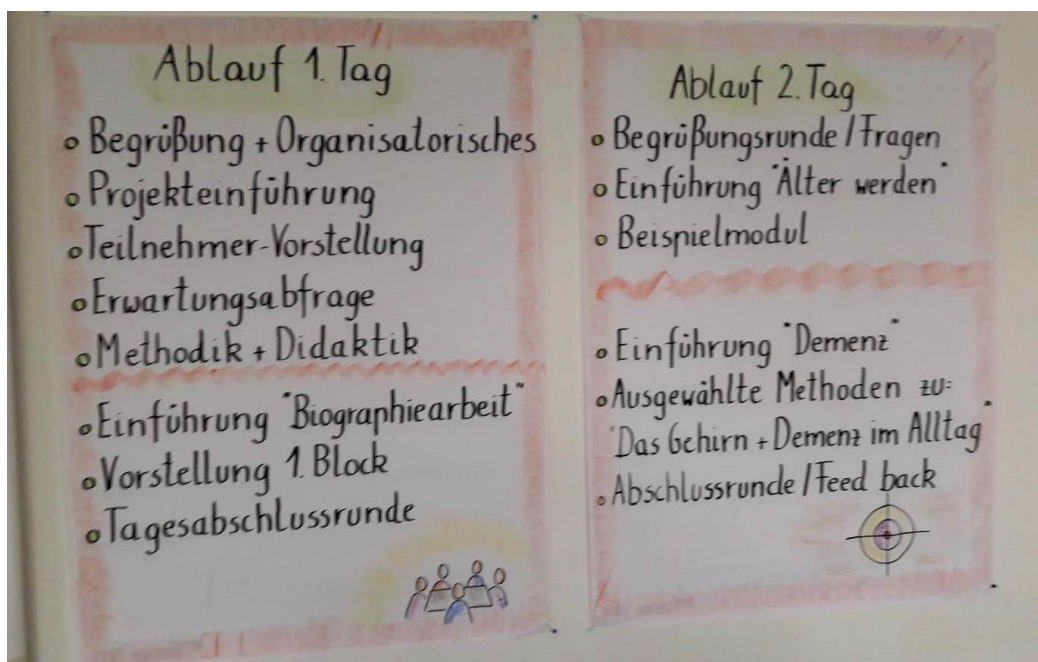 Ablauf 1. Tag
Begrüßung + Organisatorisches
Projekteinführung
Teilnehmer-Vorstellung
Erwartungsabfrage
Methodik + Didaktik
Einführung "Biographiearbeit"
Vorstellung 1. Block
Tagesabschlussrunde
Ablauf 2. Tag
Begrüßungsrunde / Fragen
Einführung "Älter werden"
Beispielmodul
Einführung "Demenz"
Ausgewählte Methoden zu:
"Das Gehirn + Demenz im Alltag"
Abschlussrunde / Feed back